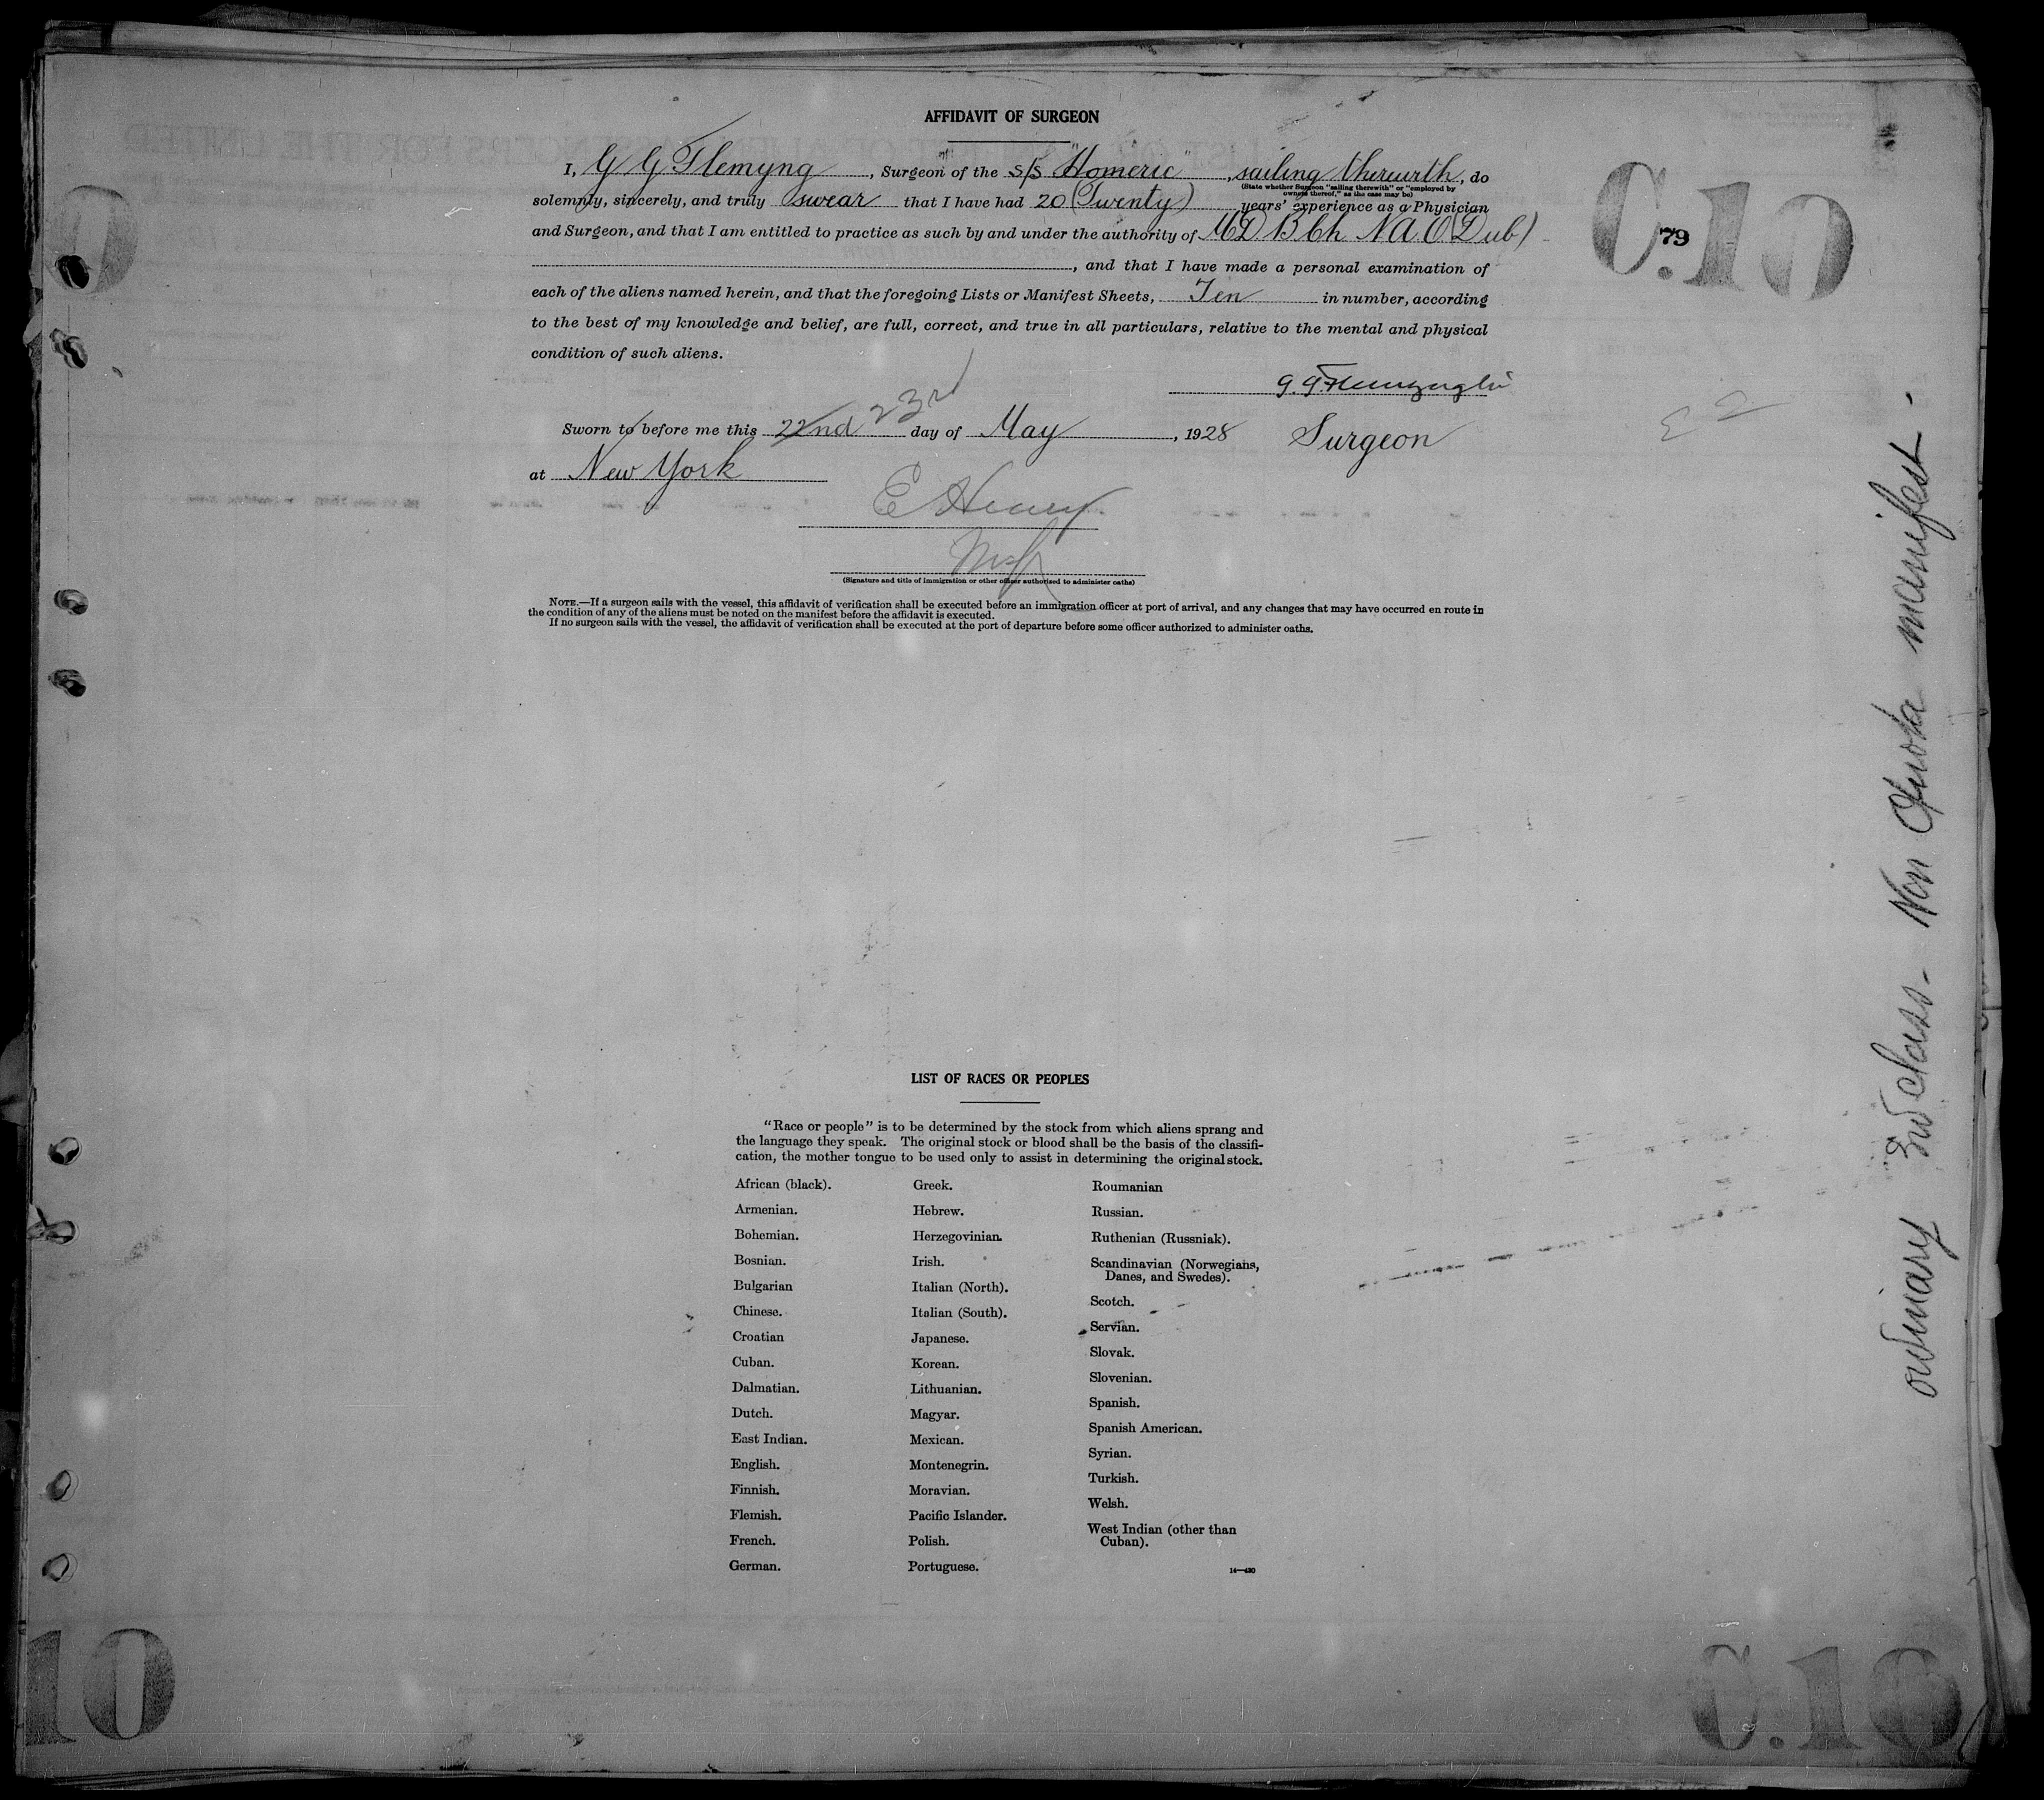 AFFIDAVIT OF SURGEON
I, G G Flemyng, Surgeon of the S/S "Homeric", sailing therewith, do
(State whether Surgeon "sailing therewith" or "employed by
owners thereof," as the case may be)
solemnly, sincerely, and truly swear that I have had 20 (Twenty) years' experience as a Physician
and Surgeon, and that I am entitled to practice as such by and under the authority of MD B Ch NAO (Dub)
79
C.10
, and that I have made a personal examination of
each of the aliens named herein, and that the foregoing Lists or Manifest Sheets, Ten in number, according
to the best of my knowledge and belief, are full, correct, and true in all particulars, relative to the mental and physical
condition of such aliens.
Sworn to before me this 22nd 23rd day of May, 1928 Surgeon
at New York
E Henry
(Signature and title of immigration or other officer authorized to administer oaths)
NOTE.—If a surgeon sails with the vessel, this affidavit of verification shall be executed before an immigration officer at port of arrival, and any changes that may have occurred en route in
the condition of any of the aliens must be noted on the manifest before the affidavit is executed.
If no surgeon sails with the vessel, the affidavit of verification shall be executed at the port of departure before some officer authorized to administer oaths.
ordinary 2nd class - Non Quota manifest -
LIST OF RACES OR PEOPLES
"Race or people" is to be determined by the stock from which aliens sprang and
the language they speak. The original stock or blood shall be the basis of the classifi-
cation, the mother tongue to be used only to assist in determining the original stock.
African (black).
Armenian.
Bohemian.
Bosnian.
Bulgarian
Chinese.
Croatian
Cuban.
Dalmatian.
Dutch.
East Indian.
English.
Finnish.
Flemish.
French.
German.
Greek.
Hebrew.
Herzegovinian.
Irish.
Italian (North).
Italian (South).
Japanese.
Korean.
Lithuanian.
Magyar.
Mexican.
Montenegrin.
Moravian.
Pacific Islander.
Polish.
Portuguese.
Roumanian
Russian.
Ruthenian (Russniak).
Scandinavian (Norwegians,
Danes, and Swedes).
Scotch.
Servian.
Slovak.
Slovenian.
Spanish.
Spanish American.
Syrian.
Turkish.
Welsh.
West Indian (other than
Cuban).
14—430
10
C.10